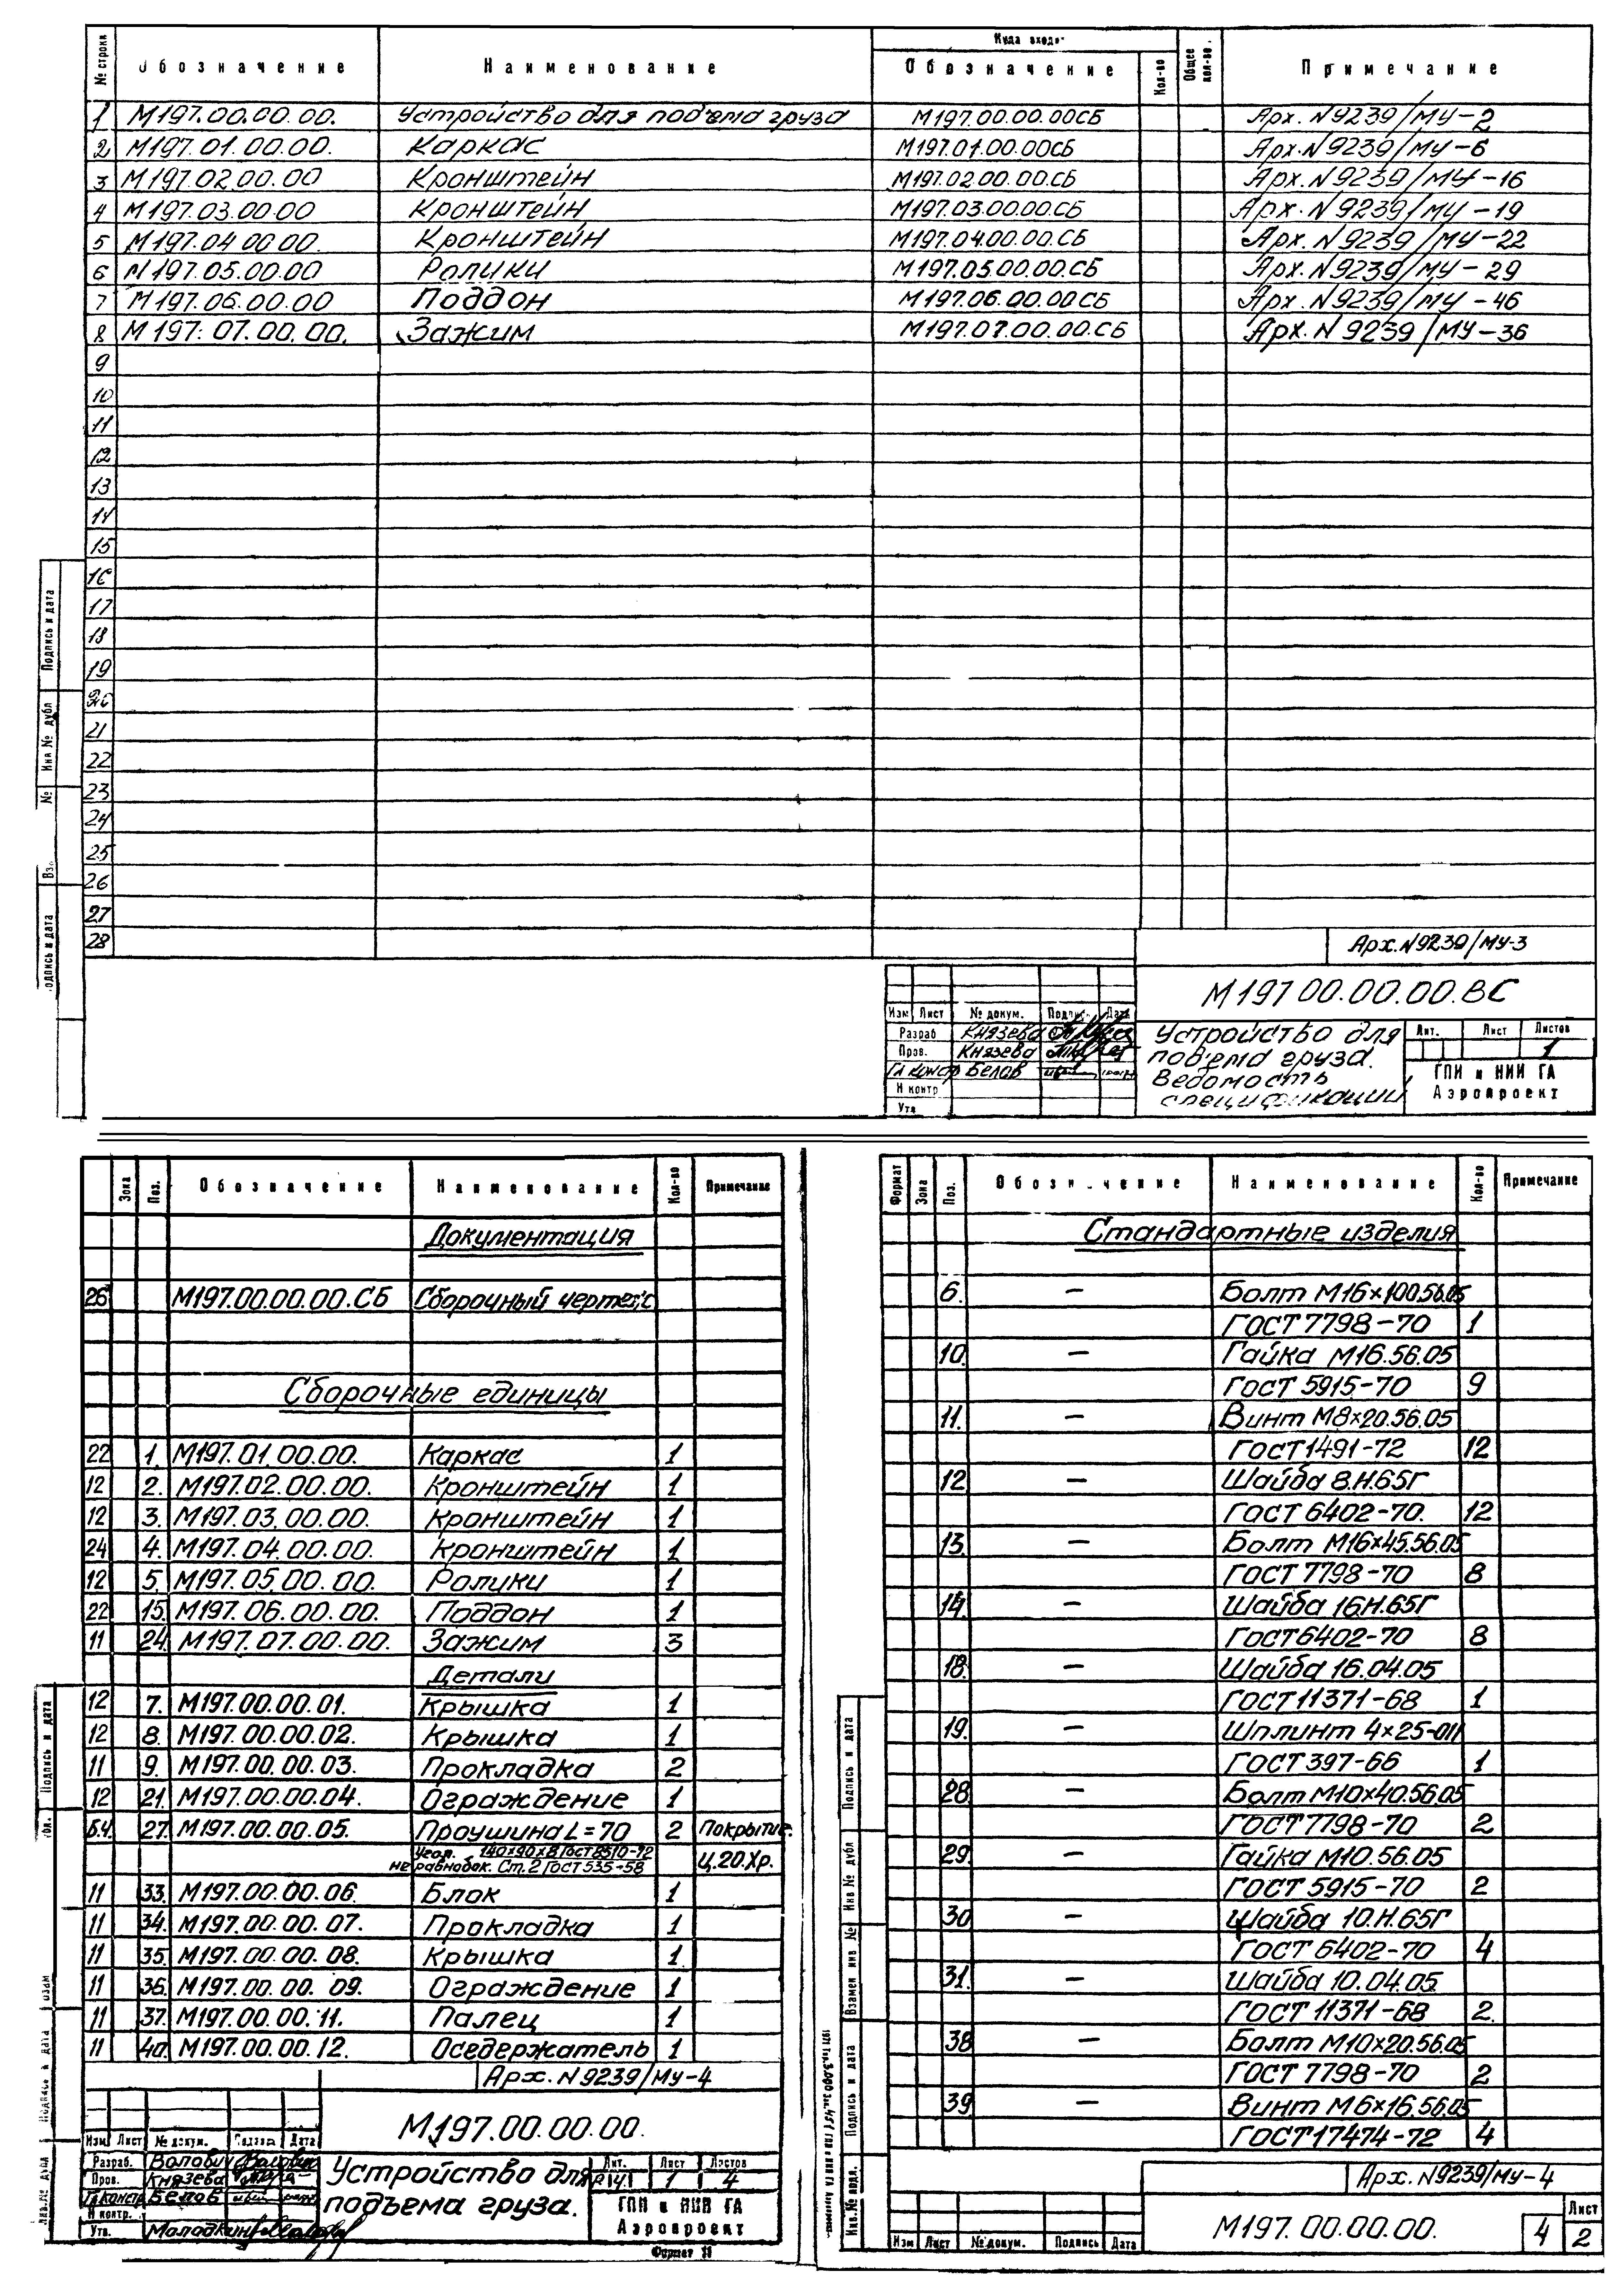 № строки Обозначение Наименование Куда входит Общее кол-во. Примечание
Обозначение Кол-во
1 М197.00.00.00. Устройство для подъема груза М197.00.00.00СБ Арх. N9239/МУ-2
2 М197.01.00.00. Каркас М197.01.00.00СБ Арх. N9239/МУ-6
3 М197.02.00.00 Кронштейн М197.02.00.00.СБ Арх. N9239/МУ-16
4 М197.03.00.00 Кронштейн М197.03.00.00.СБ Арх. N9239/МУ-19
5 М197.04.00.00. Кронштейн М197.04.00.00.СБ Арх. N9239/МУ-22
6 М197.05.00.00 Ролики М197.05.00.00.СБ Арх. N9239/МУ-29
7 М197.06.00.00 Поддон М197.06.00.00СБ Арх. N9239/МУ-46
8 М197.07.00.00. Зажим М197.07.00.00.СБ Арх. N9239/МУ-36
9
10
11
12
13
14
15
16
17
18
19
20
21
22
23
24
25
26
27
28
Подпись и дата
Инв № дубл
№
одпись и дата
Арх. N9239/МУ-3
М197 00.00.00.ВС
Изм Лист № докум. Подпись Дата
Разраб Князева
Пров. Князева
Гл констр Белов
Н контр
Утв
Устройство для
подъема груза.
Ведомость
спецификации
Лит. Лист Листов
1
ГПИ и НИИ ГА
Аэропроект
Зона Поз. Обозначение Наименование Кол-во Примечание
Документация
26 М197.00.00.00.СБ Сборочный
Сборочные единицы
22 1. М197.01.00.00. Каркас 1
12 2. М197.02.00.00. Кронштейн 1
12 3. М197.03.00.00. Кронштейн 1
24 4. М197.04.00.00. Кронштейн 1
12 5. М197.05.00.00. Ролики 1
22 15. М197.06.00.00. Поддон 1
11 24. М197.07.00.00. Зажим 3
Детали
12 7. М197.00.00.01. Крышка 1
12 8. М197.00.00.02. Крышка 1
11 9. М197.00.00.03. Прокладка 2
12 21. М197.00.00.04. Ограждение 1
Б.Ч. 27. М197.00.00.05. Проушина L=70 2 Покрытие.
Угол. 140×90×8 ГОСТ 8510-72
неравнобок. Ст.2 ГОСТ 535-58 Ц.20.Хр.
11 33. М197.00.00.06. Блок 1
11 34. М197.00.00.07. Прокладка 1
11 35. М197.00.00.08. Крышка 1
11 36. М197.00.00.09. Ограждение 1
11 37. М197.00.00.11. Палец 1
11 40. М197.00.00.12. Оседержатель 1
Арх. N9239/МУ-4
М197.00.00.00.
Изм Лист № докум. Подпись Дата
Разраб. Валович
Пров. Князева
Гл.констр Белов
Н контр.
Утв.
Устройство для
подъема груза.
Лит. Лист Листов
1 4
ГПИ и НИИ ГА
Аэропроект
Формат 11
Подпись и дата
Формат Зона Поз. Обозначение Наименование Кол-во Примечание
Стандартные изделия
6. — Болт М16×100.56.05
ГОСТ 7798-70 1
10. — Гайка М16.56.05
ГОСТ 5915-70 9
11. — Винт М8×20.56.05
ГОСТ 1491-72 12
12 — Шайба 8.Н.65Г
ГОСТ 6402-70. 12
13. — Болт М16×45.56.05
ГОСТ 7798-70 8
14. — Шайба 16.Н.65Г
ГОСТ 6402-70 8
18. — Шайба 16.04.05
ГОСТ 11371-68 1
19. — Шплинт 4×25-011
ГОСТ 397-66 1
28. — Болт М10×40.56.05
ГОСТ 7798-70 2
29. — Гайка М10.56.05
ГОСТ 5915-70 2
30 — Шайба 10.Н.65Г
ГОСТ 6402-70 4
31. — Шайба 10.04.05.
ГОСТ 11371-68 2.
38 — Болт М10×20.56.05
ГОСТ 7798-70 2
39. — Винт М6×16.56.05
ГОСТ 17474-72 4
Подпись и дата
Инв № дубл
Взамен инв №
Подпись и дата
Инв.№ подл.
Арх. N9239/МУ-4
М197.00.00.00.
4
Лист
2
Изм Лист № докум. Подпись Дата